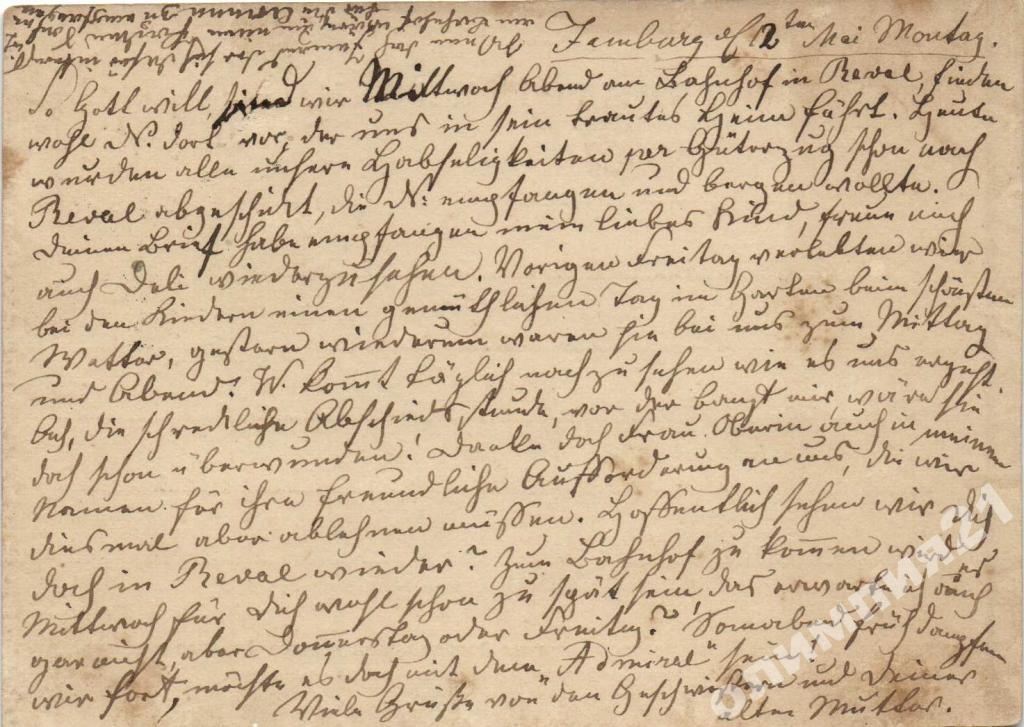 Jamburg d 12ten Mai Montag.
So Gott will, sind wir Mittwoch Abend am Bahnhof in Reval, finden
wohl N. dort vor, der uns in sein trautes Heim führt. Heute
wurden alle unsere Habseligkeiten per Güterzug schon nach
Reval abgeschickt, die N: empfangen und bergen wollte.
Deinen Brief habe empfangen mein liebes Kind, freue mich
auch Deli wiederzusehen. Vorigen Freitag verlebten wir
bei den Kindern einen gemüthlichen Tag im Garten beim schönsten
Wetter, gestern wiederum waren sie bei uns zum Mittag
und Abend! W. kommt täglich nachzusehen wie es uns ergeht.
Ach, die schreckliche Abschiedsstunde, vor der bangt mir, wäre sie
doch schon überwunden! Danke doch Frau Oberin auch in meinem
Namen für ihre freundliche Aufforderung an uns, die wir
diesmal aber ablehnen müssen. Hoffentlich sehen wir dich
doch in Reval wieder? Zum Bahnhof zu kommen wird es
Mittwoch für Dich wohl schon zu spät sein, das erwarte ich auch
gar nicht, aber Donnerstag oder Freitag? Sonnabend früh dampfen
wir fort, möchte es doch mit dem "Admiral" sein,
Viele Grüße von den Geschwistern und Deiner
alten Mutter.
олимпия21